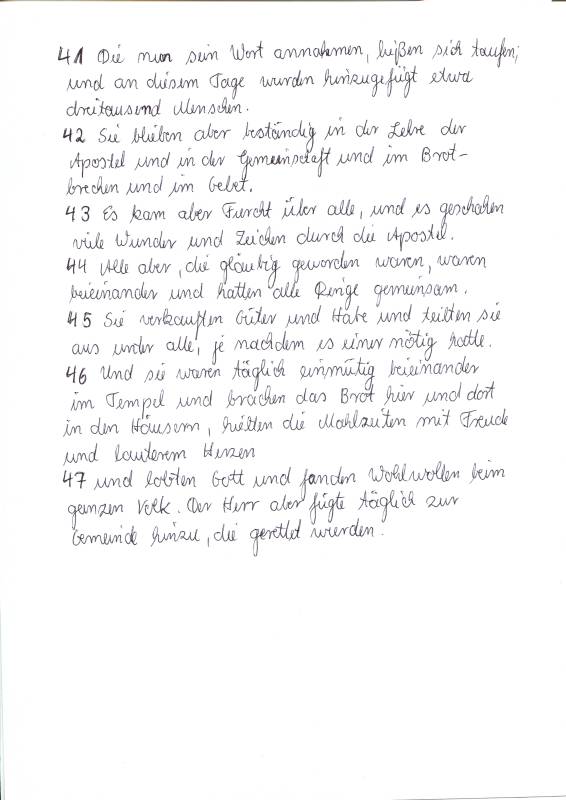 41 Die nun sein Wort annahmen, ließen sich taufen;
und an diesem Tage wurden hinzugefügt etwa
dreitausend Menschen.
42 Sie blieben aber beständig in der Lehre der
Apostel und in der Gemeinschaft und im Brot-
brechen und im Gebet.
43 Es kam aber Furcht über alle, und es geschahen
viele Wunder und Zeichen durch die Apostel.
44 Alle aber, die gläubig geworden waren, waren
beieinander und hatten alle Dinge gemeinsam.
45 Sie verkauften Güter und Habe und teilten sie
aus unter alle, je nachdem es einer nötig hatte.
46 Und sie waren täglich einmütig beieinander
im Tempel und brachen das Brot hier und dort
in den Häusern, hielten die Mahlzeiten mit Freude
und lauterem Herzen
47 und lobten Gott und fanden Wohlwollen beim
ganzen Volk. Der Herr aber fügte täglich zur
Gemeinde hinzu, die gerettet wurden.